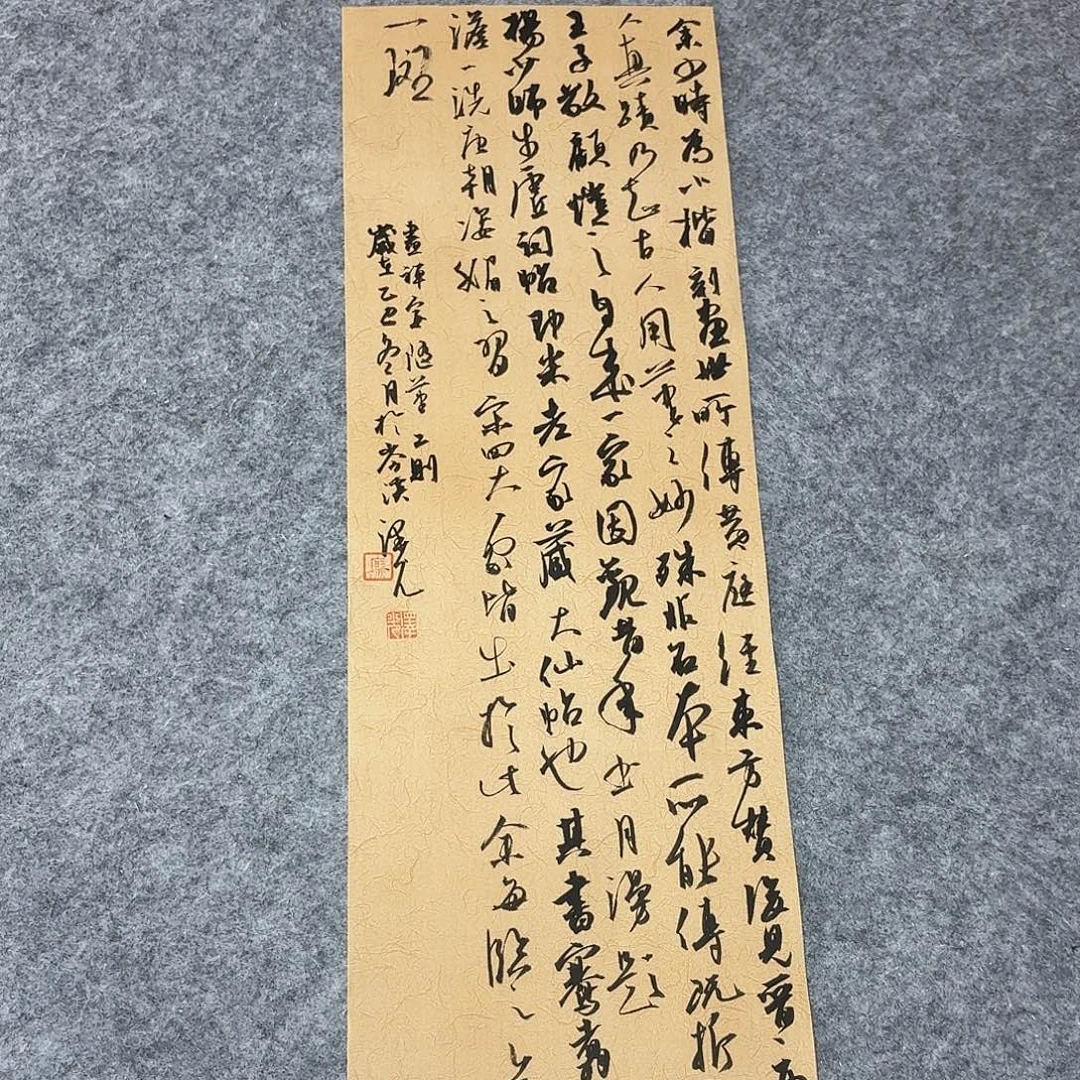 余少時為小楷刻畫世所傳黃庭經東方贊後見晉
人真蹟乃知古人用筆之妙殊非石本所能傳既折
王子敬顧愷之自成一家因觀昔年書月漫題
楊少師步虛詞帖即米老家藏大仙帖也其書騫翥
澹一洗唐朝姿媚之習宋四大家皆出於此余每臨之亦
一斑
畫禪室隨筆二則
歲在乙巳冬月於岑溪